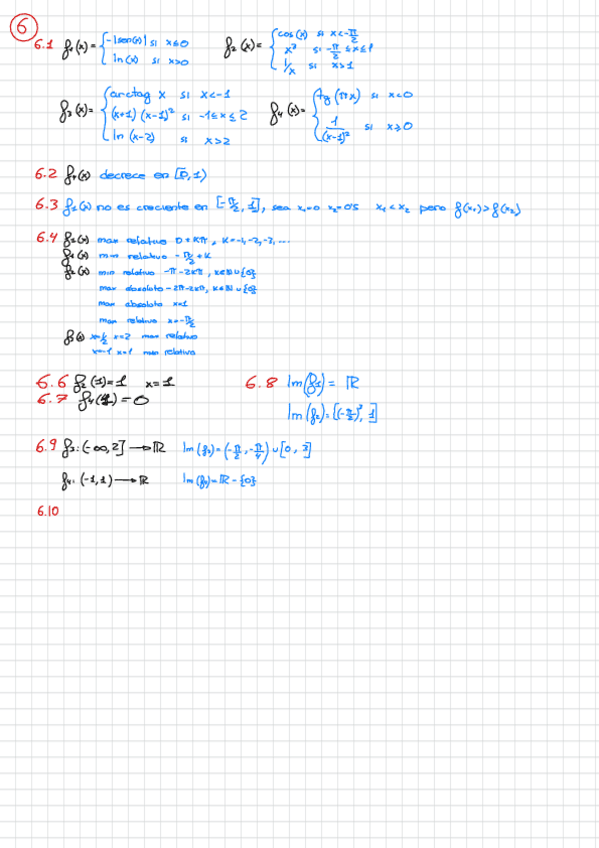 6
6.1 f₁(x)= { -|sen(x)| si x≤0
ln(x) si x>0
f₂(x)= { cos(x) si x<-π/2
x³ si -π/2 ≤ x ≤ 1
1/x si x>1
f₃(x)= { arctag x si x<-1
(x+1)(x-1)² si -1≤x≤2
ln(x-2) si x>2
f₄(x)= { tg(πx) si x<0
1/(x-1)² si x≥0
6.2 f₄(x) decrece en [0,1)
6.3 f₁(x) no es creciente en [-π/2, 1/2], sea x₁=0 x₂=0'5 x₁<x₂ pero f(x₁)>f(x₂)
6.4 f₁(x) max relativo 0+kπ, k=-1,-2,-3,...
min relativo -π/2+k
f₂(x) min relativo -π-2kπ, k∈ℕ∪{0}
max absoluto -2π-2kπ, k∈ℕ∪{0}
max absoluto x=1
max relativo x=-π/2
x=2 max relativo
x=-1 x=1 min relativo
6.6 f₂(1)=1 x=1
6.7 =0
6.8 Im(f₁)= ℝ
Im(f₂)=[(-π/2)³, 1]
6.9 f₃:(-∞,2]→ℝ Im(f₃)=(-π/2,-π/4)∪[0,3]
f₄:(-1,1)→ℝ Im(f₄)=ℝ-{0}
6.10